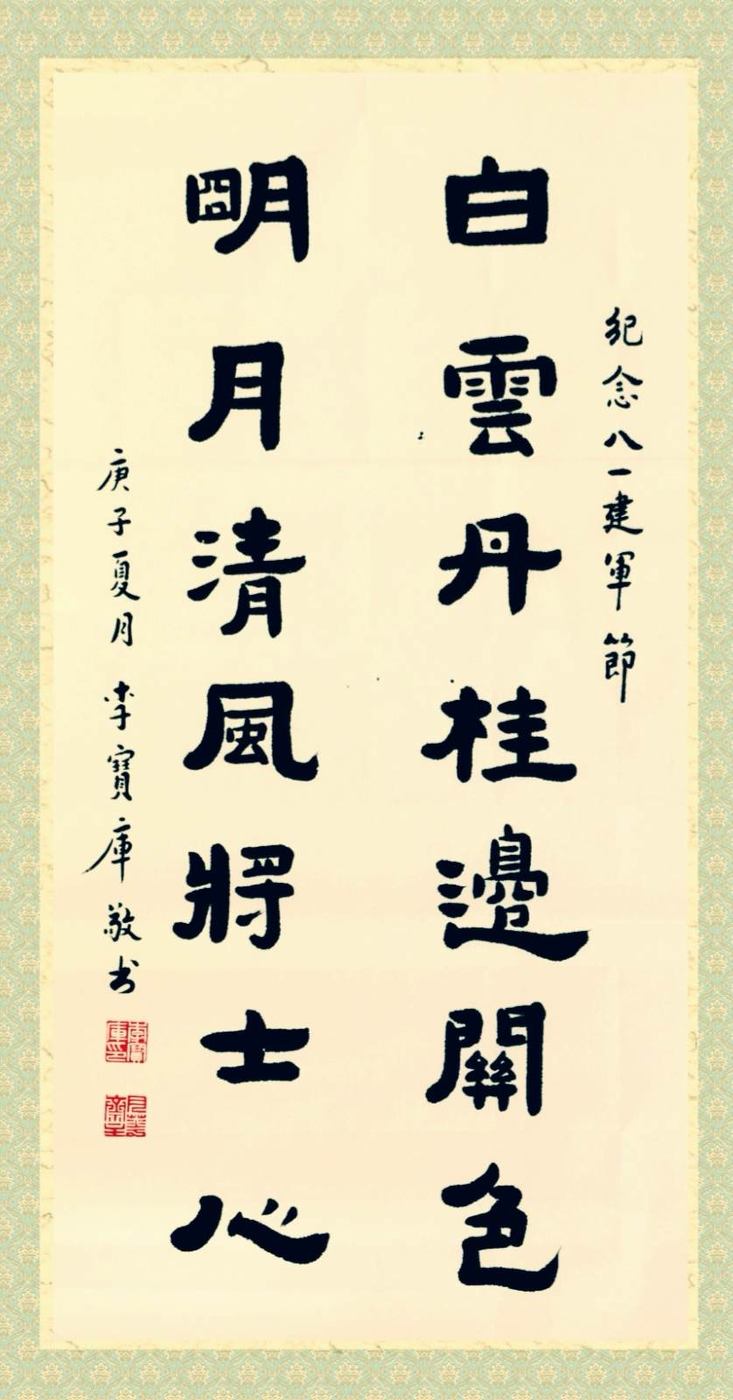 紀念八一建軍節
白雲丹桂邊關色
明月清風將士心
庚子夏月 李寶庫敬书